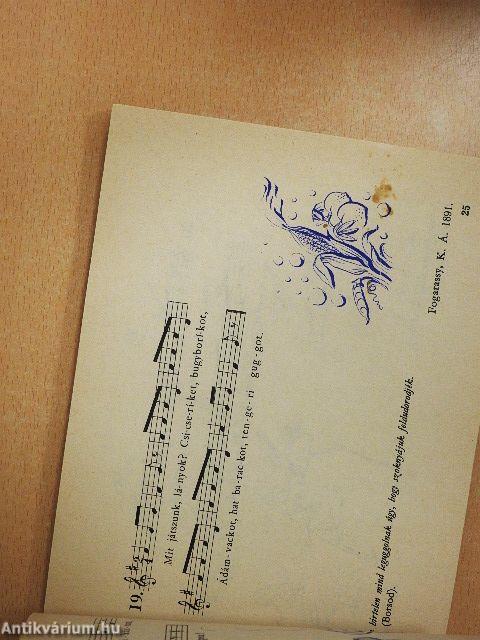 19.
Mit játszunk, lá-nyok? Csi-cse-ri-ket, bugybori-kot,
Ádám-vackot, hat ba-rac-kot, ten-ge-ri gug-got.
hirtelen mind leguggolnak úgy, hogy szoknyájuk feldudorodjék.
(Borsod).
Fogarassy, K. Á. 1891.
25
Antikvárium.hu